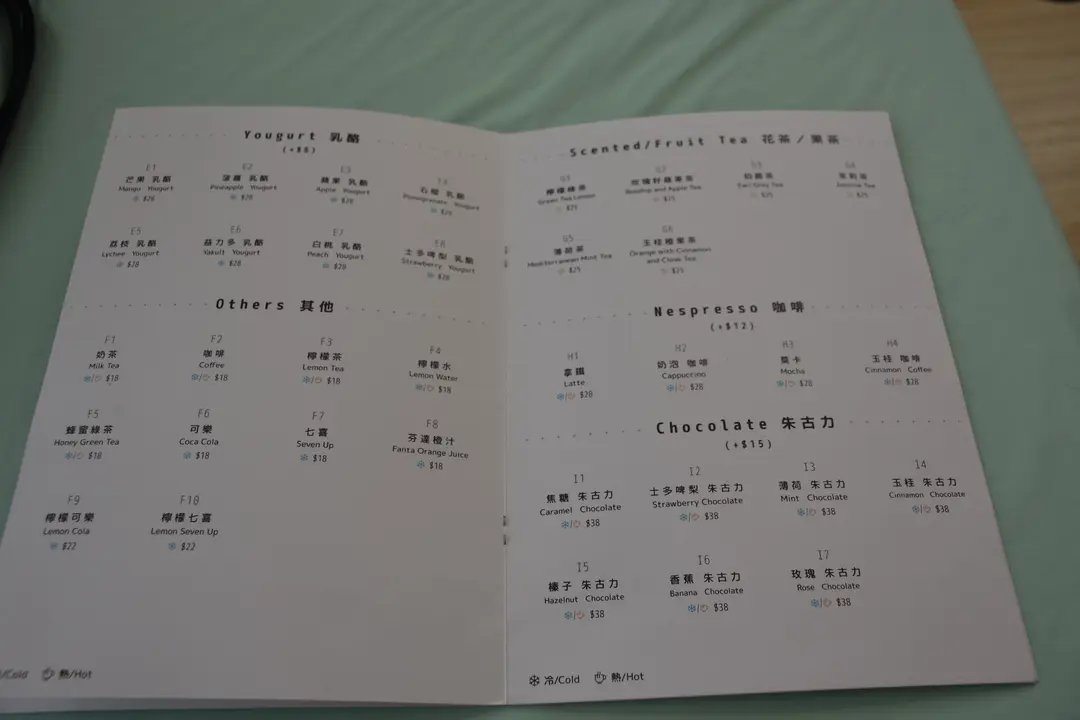 Yougurt 乳酪
(+$8)
E1
芒果 乳酪
Mango Yougurt
$28
E2
菠蘿 乳酪
Pineapple Yougurt
$28
E3
蘋果 乳酪
Apple Yougurt
$28
E4
石榴 乳酪
Pomegranate Yougurt
$28
E5
荔枝 乳酪
Lychee Yougurt
$28
E6
益力多 乳酪
Yakult Yougurt
$28
E7
白桃 乳酪
Peach Yougurt
$28
E8
士多啤梨 乳酪
Strawberry Yougurt
$28
Others 其他
F1
奶茶
Milk Tea
/ $18
F2
咖啡
Coffee
/ $18
F3
檸檬茶
Lemon Tea
/ $18
F4
檸檬水
Lemon Water
/ $18
F5
蜂蜜綠茶
Honey Green Tea
/ $18
F6
可樂
Coca Cola
$18
F7
七喜
Seven Up
$18
F8
芬達橙汁
Fanta Orange Juice
$18
F9
檸檬可樂
Lemon Cola
$22
F10
檸檬七喜
Lemon Seven Up
$22
/Cold 熱/Hot
Scented/Fruit Tea 花茶/果茶
G1
檸檬綠茶
Green Tea Lemon
$25
G2
玫瑰籽蘋果茶
Rosehip and Apple Tea
$25
G3
伯爵茶
Earl Grey Tea
$25
G4
茉莉茶
Jasmine Tea
$25
G5
薄荷茶
Mediterranean Mint Tea
$25
G6
玉桂橙果茶
Orange with Cinnamon
and Clove Tea
$25
Nespresso 咖啡
(+$12)
H1
拿鐵
Latte
/ $28
H2
奶泡 咖啡
Cappuccino
/ $28
H3
莫卡
Mocha
/ $28
H4
玉桂 咖啡
Cinnamon Coffee
/ $28
Chocolate 朱古力
(+$15)
I1
焦糖 朱古力
Caramel Chocolate
/ $38
I2
士多啤梨 朱古力
Strawberry Chocolate
/ $38
I3
薄荷 朱古力
Mint Chocolate
/ $38
I4
玉桂 朱古力
Cinnamon Chocolate
/ $38
I5
榛子 朱古力
Hazelnut Chocolate
/ $38
I6
香蕉 朱古力
Banana Chocolate
/ $38
I7
玫瑰 朱古力
Rose Chocolate
/ $38
冷/Cold 熱/Hot